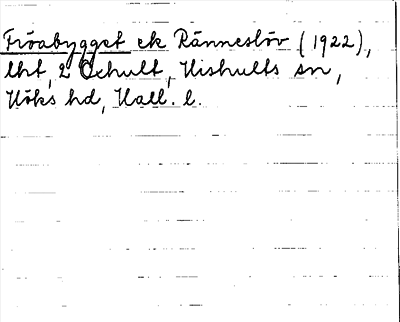 Fröabygget ek Ränneslöv (1922),
lht, 2 Öchult, Hishults sn,
Höks hd, Hall. l.